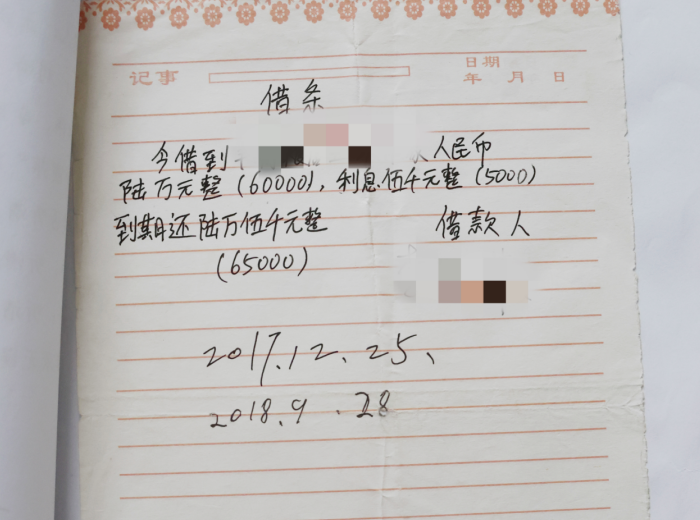 日期
记事 年 月 日
借条
今借到 人民币
陆万元整(60000),利息伍千元整(5000)
到期还陆万伍千元整 借款人
(65000)
2017.12、25、
2018.9.28